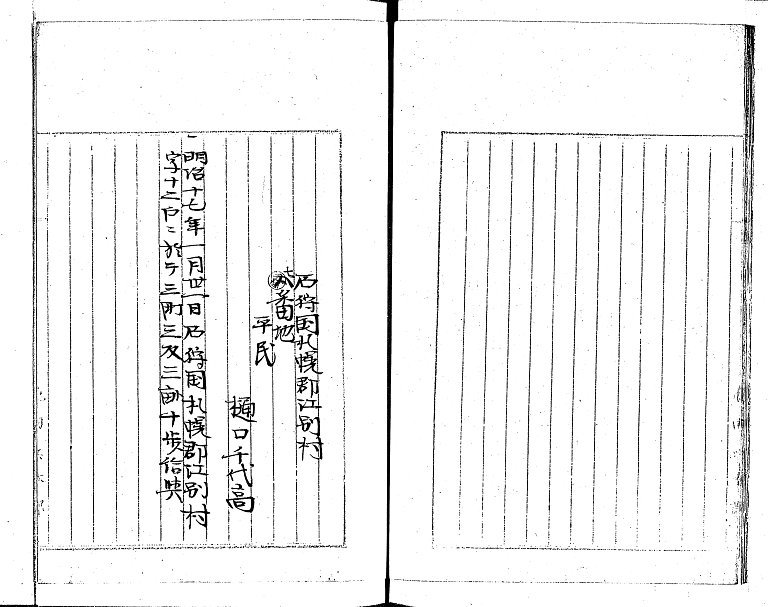 石狩国札幌郡江別村
番地
平民
樋口千代高
一明治十七年一月廿一日石狩国札幌郡江別村
字十二戸ニ於テ三町三反三畝十歩給与